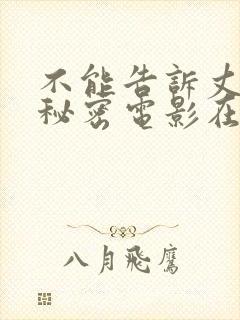 不能告訴丈
秘密電影在
八月飛鷹